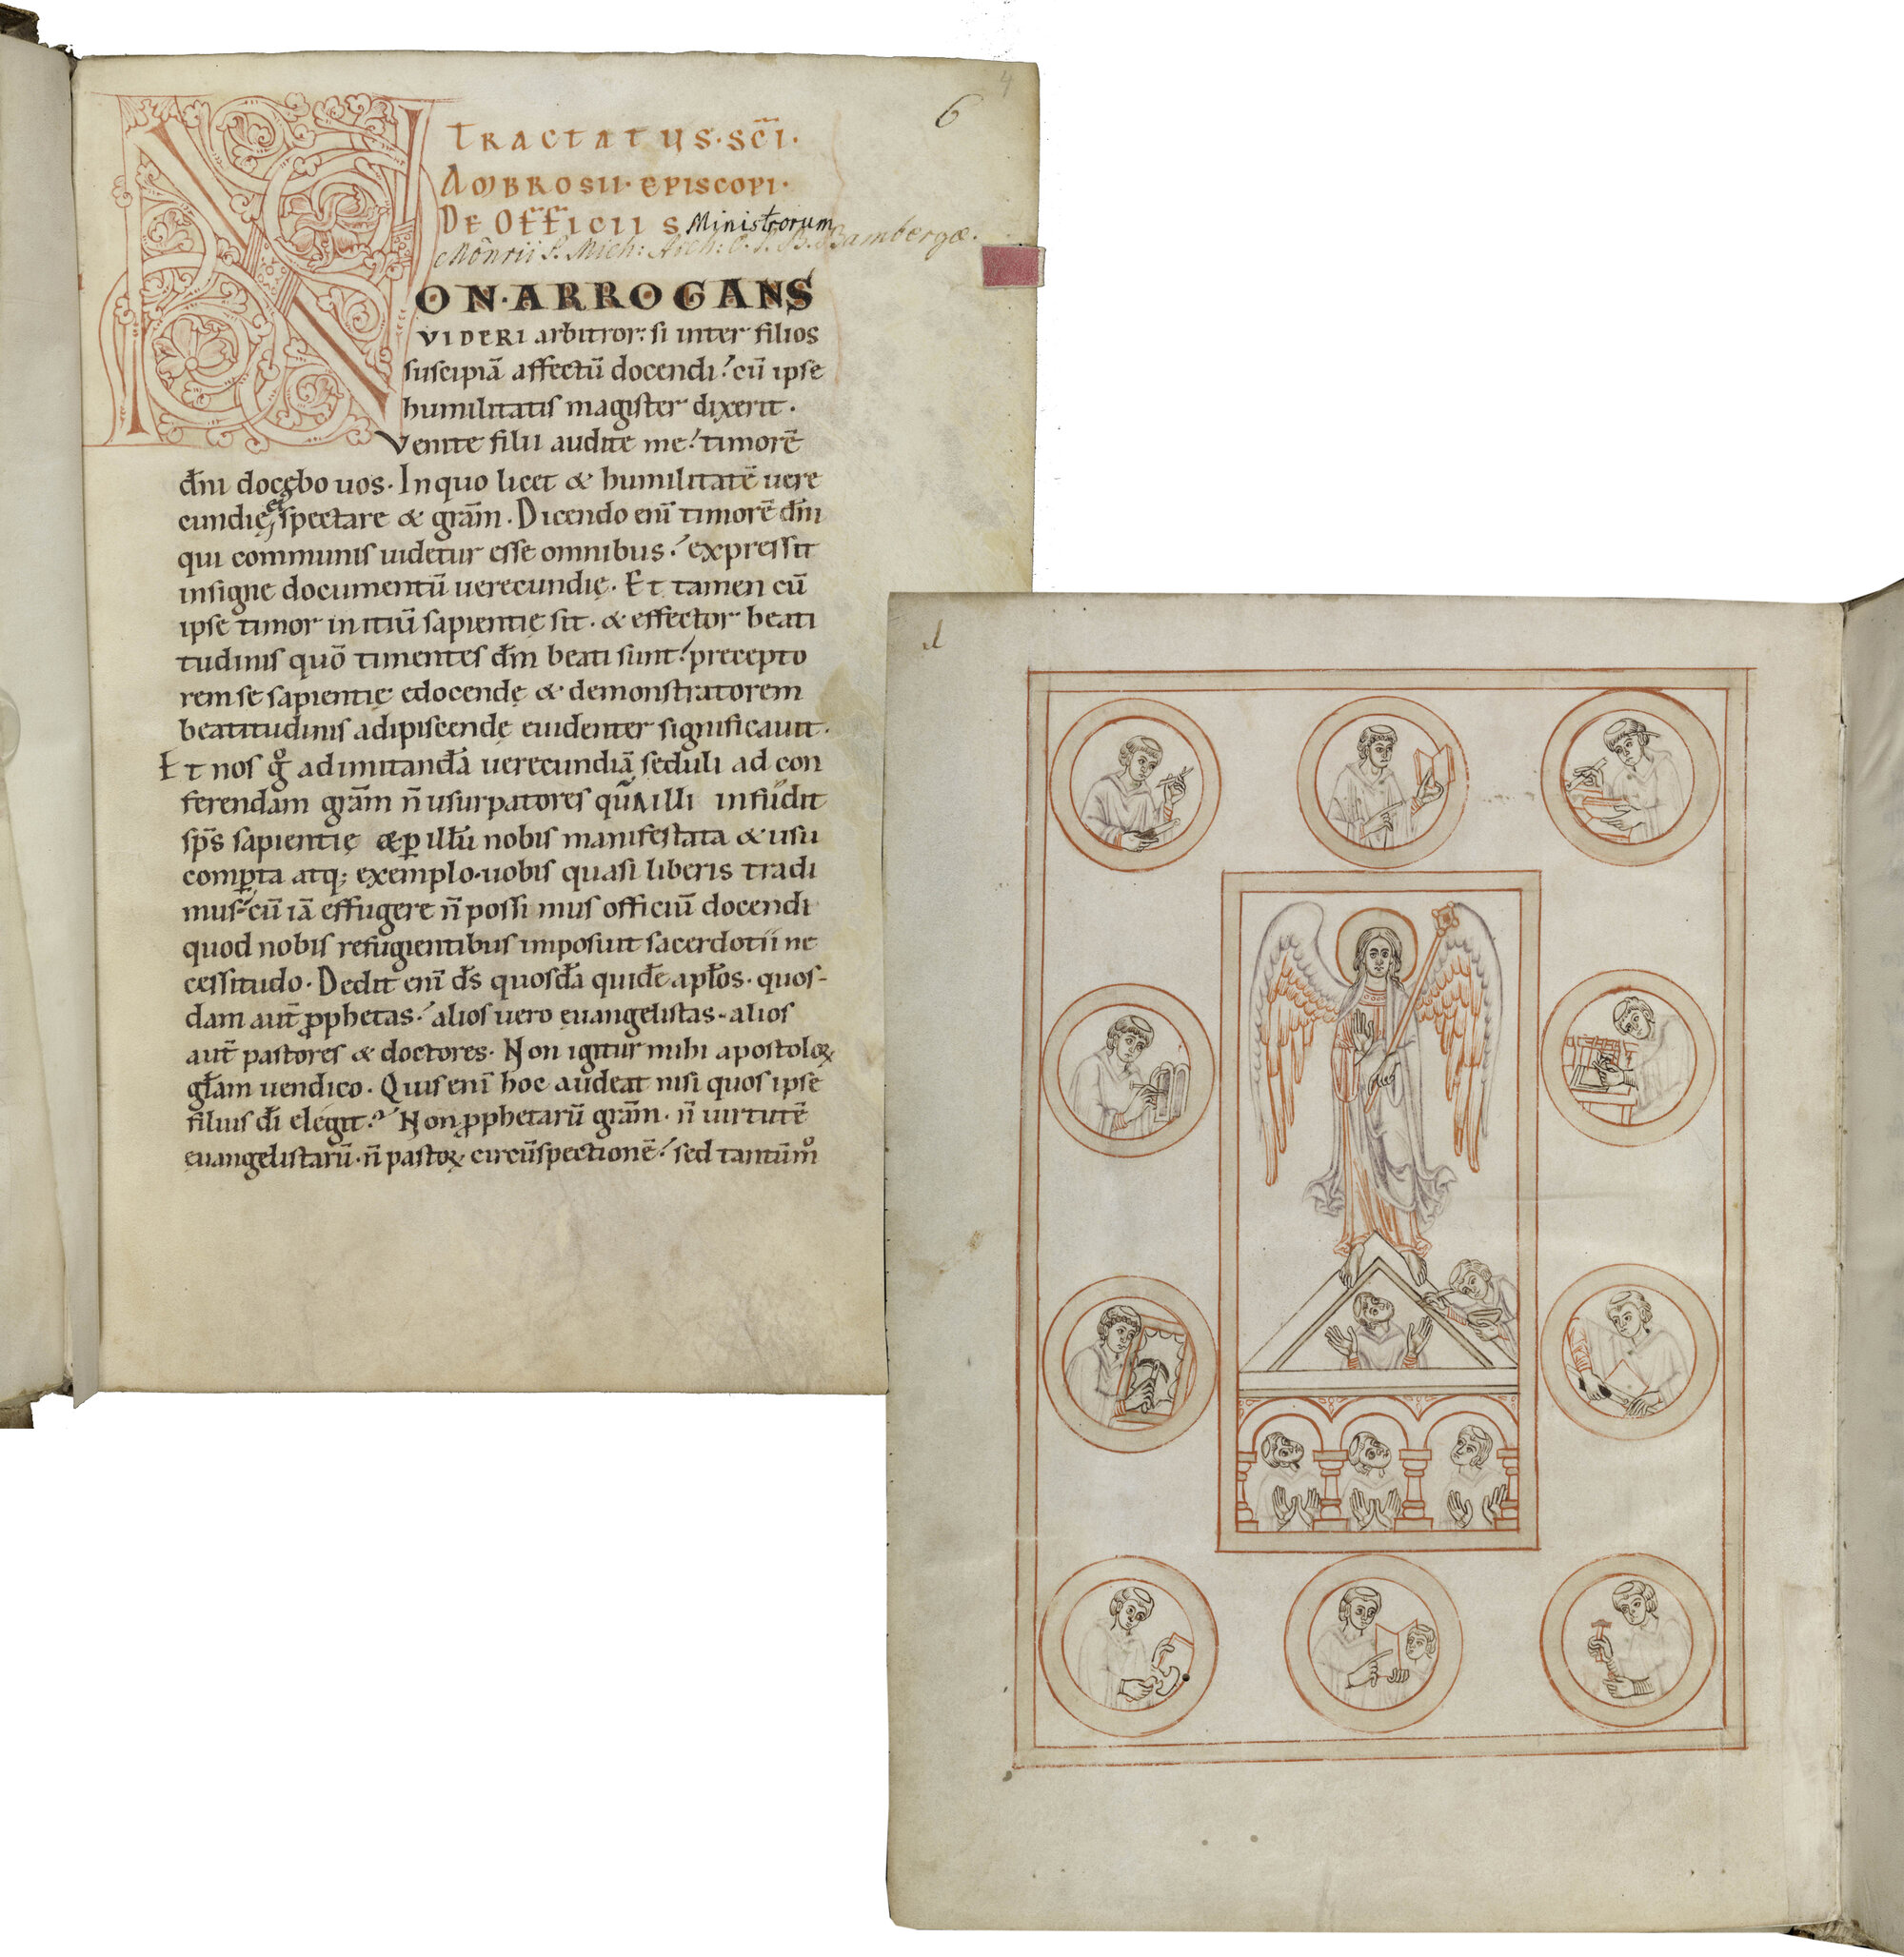 4
6
TRACTATUS·SC̄I·
AMBROSII·EPISCOPI·
DE OFFICIIS Ministrorum
Mônrii S. Mich: Arch: O. S. B. Bambergæ.
NON·ARROGANS
VIDERI arbitror: si inter filios
suscipiā affectū docendi? cū ipse
humilitatis magister dixerit·
Venite filii audite me? timorē
dn̄i docebo uos· In quo licet & humilitatē uere
cundię eı spectare & grām· Dicendo eni̅ timorē dn̄i
qui communis uidetur esse omnibus? expressit
insigne documentū uerecundię· Et tamen cū
ipse timor initiū sapientię sit· & effector beati
tudinis quō timentes dm̄ beati sunt? precepto
rem se sapientię edocendę & demonstratorem
beatitudinis adipiscendę euidenter significauit·
Et nos gͦ ad imitandā uerecundiā seduli ad con
ferendam grām n̄ usurpatores quā illi infūdit
sp̄s sapientię & ꝑ illū nobis manifestata & usu
comꝑta atq; exemplo·uobis quasi liberis tradi
mus? cū iā effugere n̄ possimus officiū docendi
quod nobis refugientibus imposuit sacerdotii ne
cessitudo· Dedit eni̅ ds̄ quosdā quidē apłos· quos-
dam aut̄ ꝓphetas? alios uero euangelistas· alios
aut̄ pastores & doctores· Non igitur mihi apostoloꝝ
głam uendico· Quis eni̅ hoc audeat nisi quos ipse
filius di̅ elegit? Non ꝓphetarū grām· n̄ uirtutē
euangelistarū· n̄ pastoꝝ circūspectionē? sed tantūmͦ